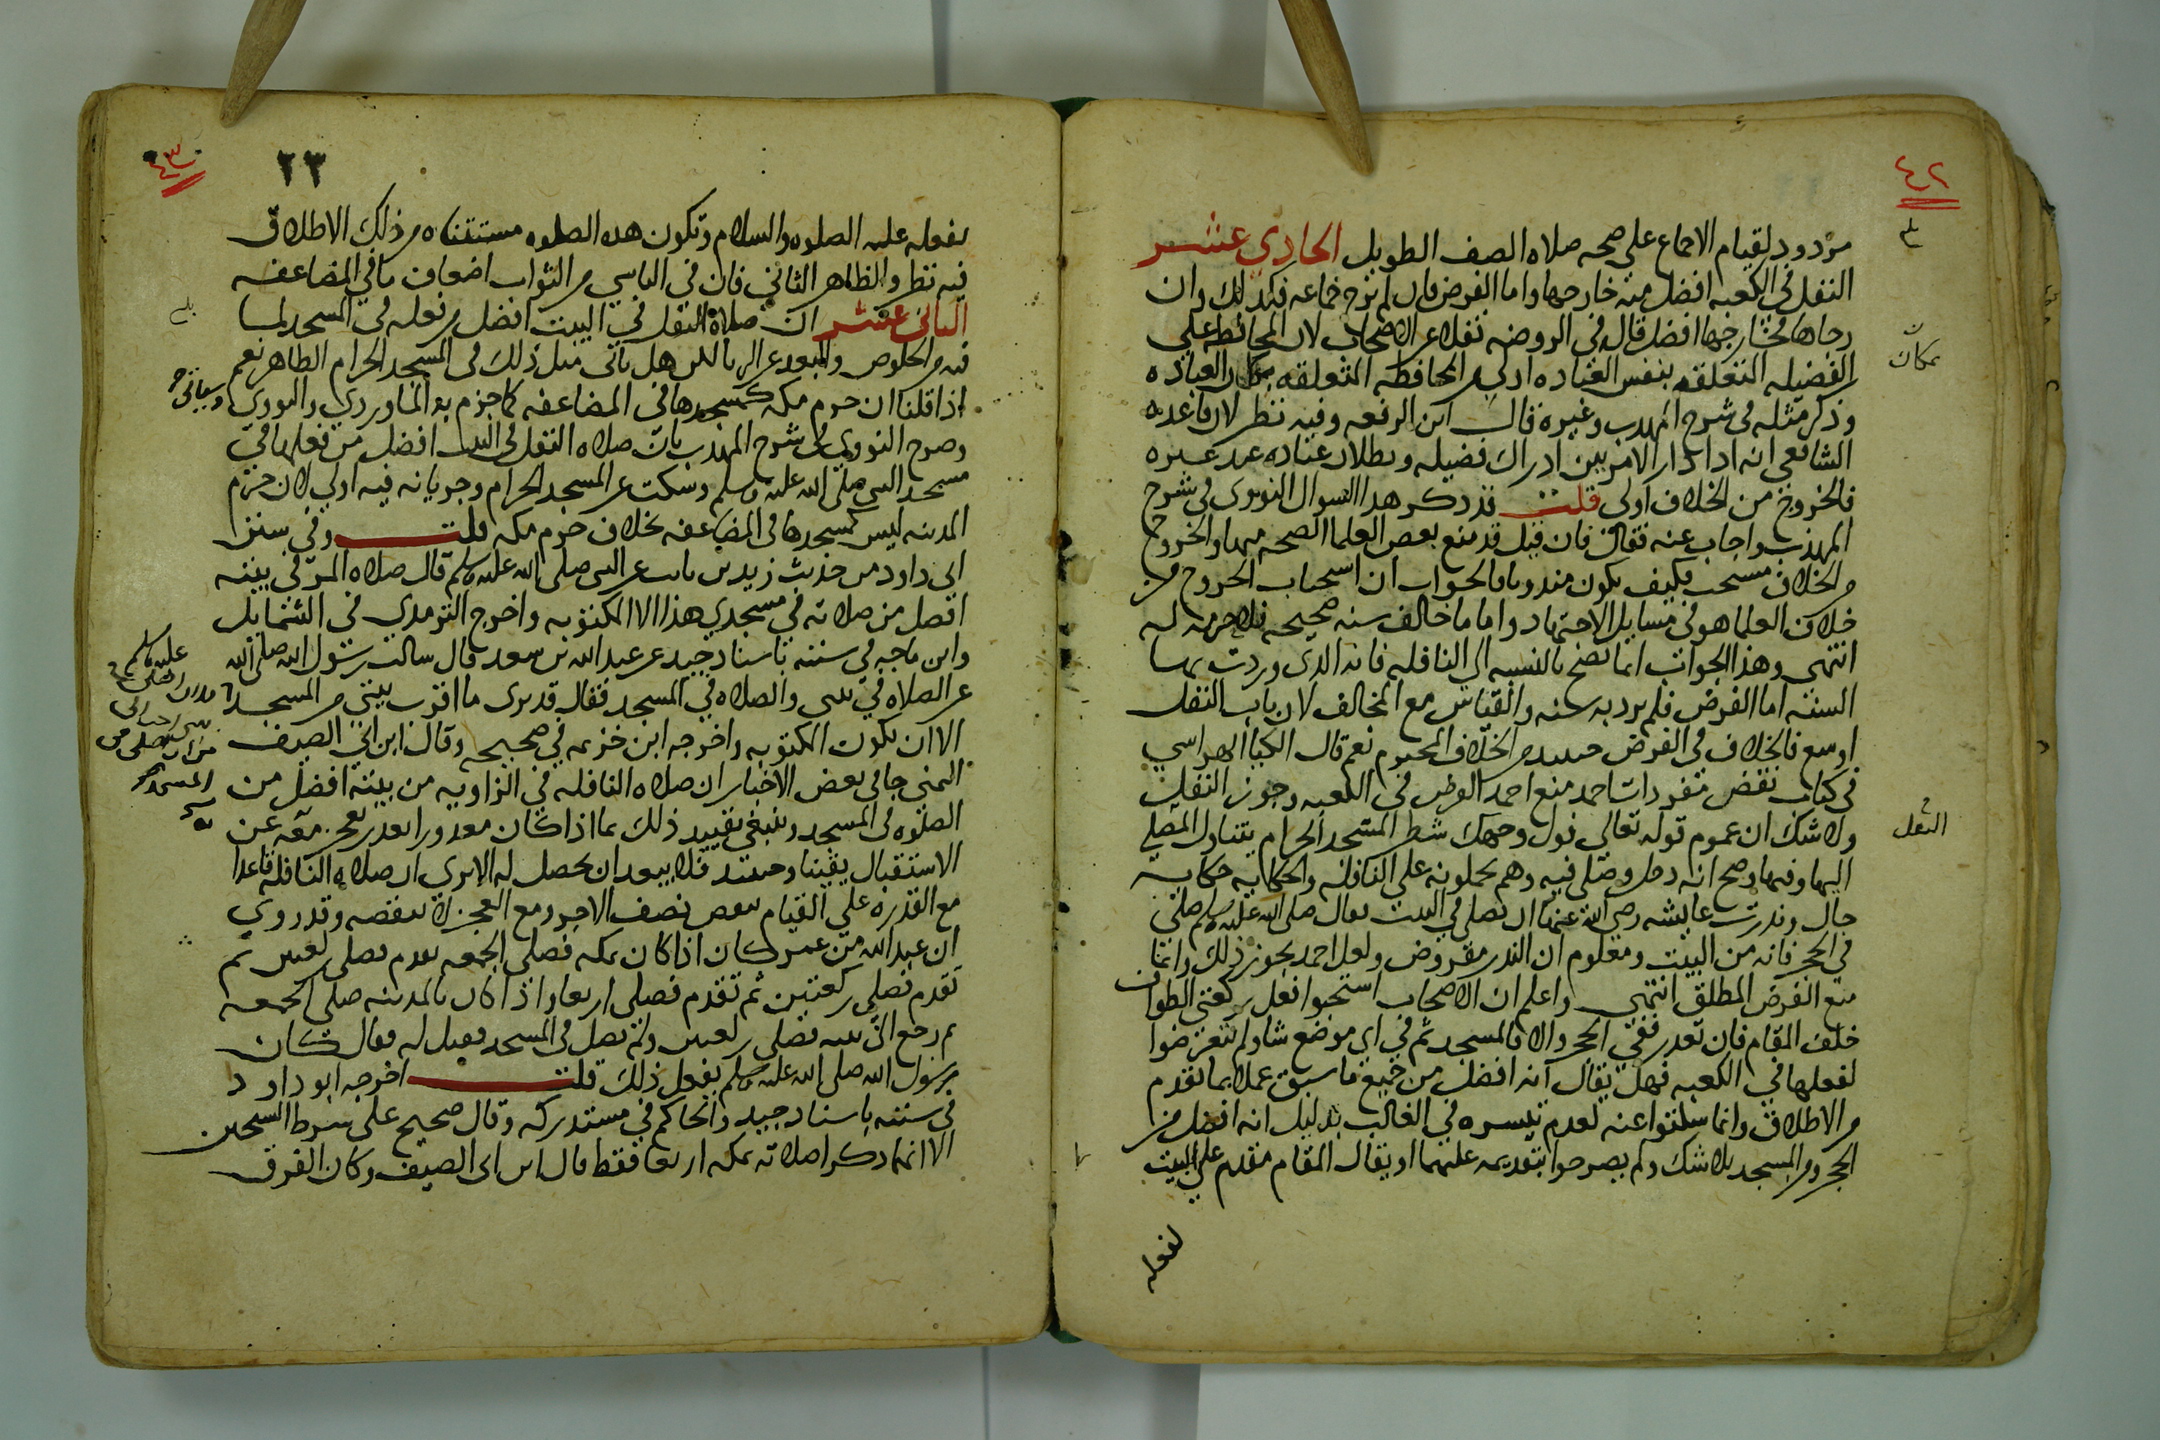 ٤٢
مردود لقيام الاجماع على صحه صلاه الصف الطويل الحادي عشر
النفل في الكعبه افضل منه خارجها واما الفرض فان لم يرج جماعه فكذلك وان
رجاها فخارجها افضل قال في الروضه نقلا عن الاصحاب لان المحافظه علي
الفضيله المتعلقه بنفس العباده اولي من المحافظه المتعلقه بمكان العباده
مكان
وذكر مثله في شرح المهذب وغيره قال ابن الرفعه وفيه نظر لان قاعده
الشافعي انه اذا دار الامر بين ادراك فضيله وبطلان عباده عند غيره
فالخروج من الخلاف اولى قلت قد ذكر هذا السوال النووى في شرح
المهذب واجاب عنه فقال فان قيل قد منع بعض العلما الصحه فيها والخروج
من الخلاف مستحب فكيف يكون مندوبا فالجواب ان استحباب الخروج من
خلاف العلما هو في مسايل الاجتهاد واما ما خالف سنه صحيحه فلا حرمه له
انتهى وهذا الجواب انما يصح بالنسبه الى النافله فانه الذى وردت بها
السنه اما الفرض فلم يرد به سنه والقياس مع المخالف لان باب النفل
اوسع فالخلاف في الفرض حينئذ من الخلاف المحترم نعم قال الكيا الهراسي
في كتاب نقض مفردات احمد منع احمد الفرض في الكعبه وجوز النفل
النفل
ولا شك ان عموم قوله تعالي فول وجهك شطر المسجد الحرام يتناول المصلي
اليها وفيها وصح انه دخل وصلى فيه وهم يحملونه علي النافله والحكايه حكايه
حال ونذرت عايشه رضي الله عنها ان تصلي في البيت فقال صلى الله عليه وسلم صلي
في الحجر فانه من البيت ومعلوم ان النذر مفروض ولعل احمد يجوز ذلك وانما
منع الفرض المطلق انتهى واعلم ان الاصحاب استحبوا فعل ركعتي الطواف
خلف المقام فان تعذر ففي الحجر والا فالمسجد ثم في اي موضع شا ولم يتعرضوا
لفعلها في الكعبه فهل يقال انه افضل من جميع ما سبق عملا بما تقدم
من الاطلاق وانما سكتوا عنه لعدم تيسره في الغالب بدليل انه افضل من
الحجر ومن المسجد بلا شك ولم يصرحوا بتقديمه عليهما او يقال المقام مقدم علي البيت
لفعله
٤٣
٢٣
لفعله عليه الصلوه والسلام وتكون هذه الصلوه مستثناه من ذلك الاطلاق
فيه نظر والظاهر الثاني فان في التاسي من الثواب اضعاف ما في المضاعفه
الثاني عشر ان صلاة النفل في البيت افضل من فعله في المسجد لما
فيه من الخلوص والبعد عن الريا لكن هل ياتي مثل ذلك في المسجد الحرام الظاهر نعم
اذا قلنا ان حرم مكه كمسجدها في المضاعفه كما جزم به الماوردي والنووي
وصرح النووي في شرح المهذب بان صلاه النفل في البيت افضل من فعلها في
مسجد النبي صلى الله عليه وسلم وسكت عن المسجد الحرام وجريانه فيه اولي لان حرم
المدينه ليس كمسجدها في المضاعفه بخلاف حرم مكه قلت وفي سنن
ابى داود من حديث زيد بن ثابت عن النبى صلى الله عليه وسلم قال صلاه المرء في بيته
افضل من صلاته في مسجدي هذا الا المكتوبه واخرج الترمذي في الشمايل
وابن ماجه في سننه باسناد جيد عن عبد الله بن سعد قال سالت رسول الله صلى الله
عليه وسلم
عن الصلاه في بيتى والصلاه في المسجد فقال قد ترى ما اقرب بيتي من المسجد
الا ان تكون المكتوبه واخرجه ابن خزيمه في صحيحه وقال ابن ابي الصيف
اليمني جا في بعض الاخبار ان صلاه النافله في الزاويه من بيته افضل من
الصلوه في المسجد وينبغي تقييد ذلك بما اذا كان معذورا بعذر يعجز معه عن
الاستقبال يقينا وحينئذ فلا يبعد ان يحصل له الا ترى ان صلاه النافله قاعدا
مع القدره علي القيام بنصف الاجر ومع العجز لا ينقصه وقد روي
ان عبد الله بن عمر كان اذا كان بمكه فصلى الجمعه تقدم فصلى ركعتين ثم
تقدم فصلى ركعتين ثم تقدم فصلى اربعا واذا كان بالمدينه صلى الجمعه
ثم رجع الى بيته فصلى ركعتين ولم يصل في المسجد فقيل له فقال كان
رسول الله صلى الله عليه وسلم يفعل ذلك قلت اخرجه ابو داود
في سننه باسناد جيد والحاكم في مستدركه وقال صحيح على شرط الشيخين
الا انهما ذكرا صلاته بمكه اربعا فقط قال ابن ابى الصيف وكان الفرق